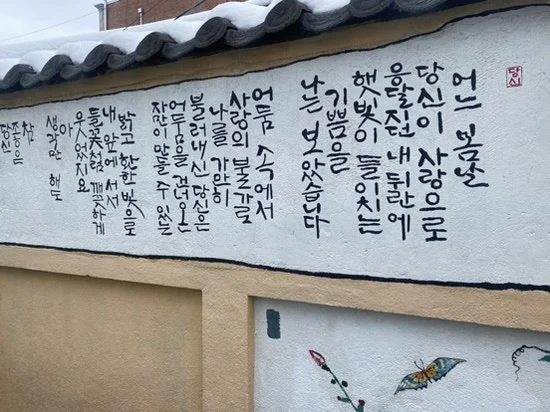 당신
어느 봄날
당신의 사랑으로
응달지던 내 뒤란에
햇빛이 들이치는
기쁨을
나는 보았습니다
어둠 속에서
사랑의 불가로
나를 가만히
불러내신 당신은
어둠을 건너온
자만이 만들 수 있는
밝고 환한 빛으로
내 앞에 서서
들꽃처럼 깨끗하게
웃었지요
아
생각만 해도
참
좋은
당신